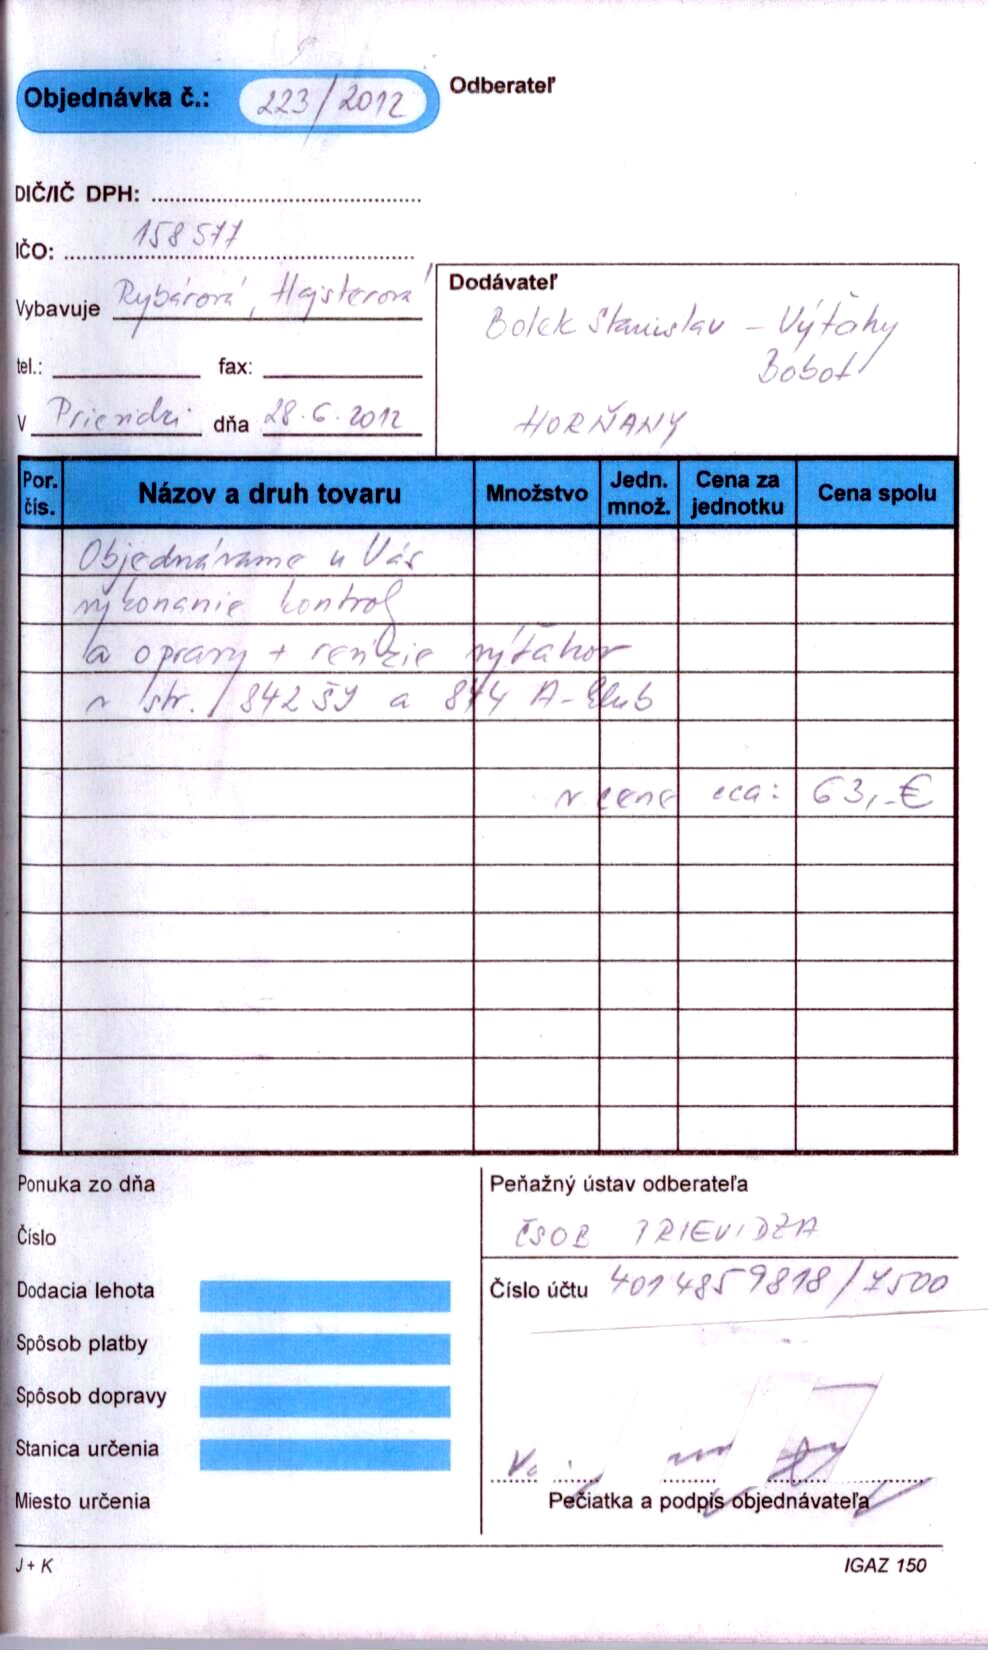 Objednávka č.: 223/2012
Odberateľ
DIČ/IČ DPH:
IČO: 158577
Vybavuje Rybárová, Hajsterová
tel.: fax:
V Prievidzi dňa 28.6.2012
Dodávateľ
Bolek Stanislav - Výťahy
Bobot
HORŇANY
Por. čís. Názov a druh tovaru Množstvo Jedn. množ. Cena za jednotku Cena spolu
Objednávame u Vás
vykonanie kontrol
a opravy + revízie výťahov
v str. 842 ŠJ a 844 A-klub
v cene cca: 63,-€
Ponuka zo dňa
Číslo
Dodacia lehota
Spôsob platby
Spôsob dopravy
Stanica určenia
Miesto určenia
Peňažný ústav odberateľa
ČSOB PRIEVIDZA
Číslo účtu 4014859818/7500
Pečiatka a podpis objednávateľa
J + K
IGAZ 150